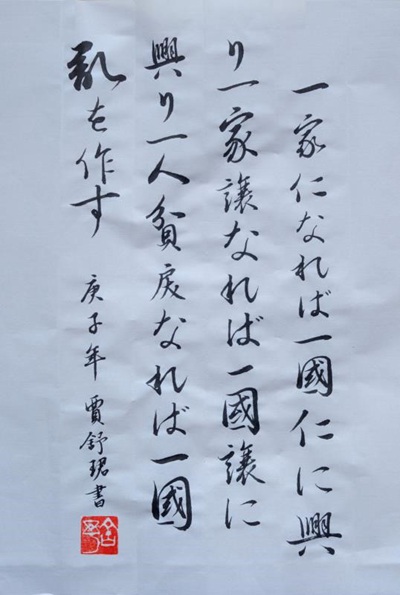 一家仁なれば一國仁に興
り一家譲なれば一國譲に
興り一人貧戻なれば一國
乱を作す
庚子年賈舒珺書